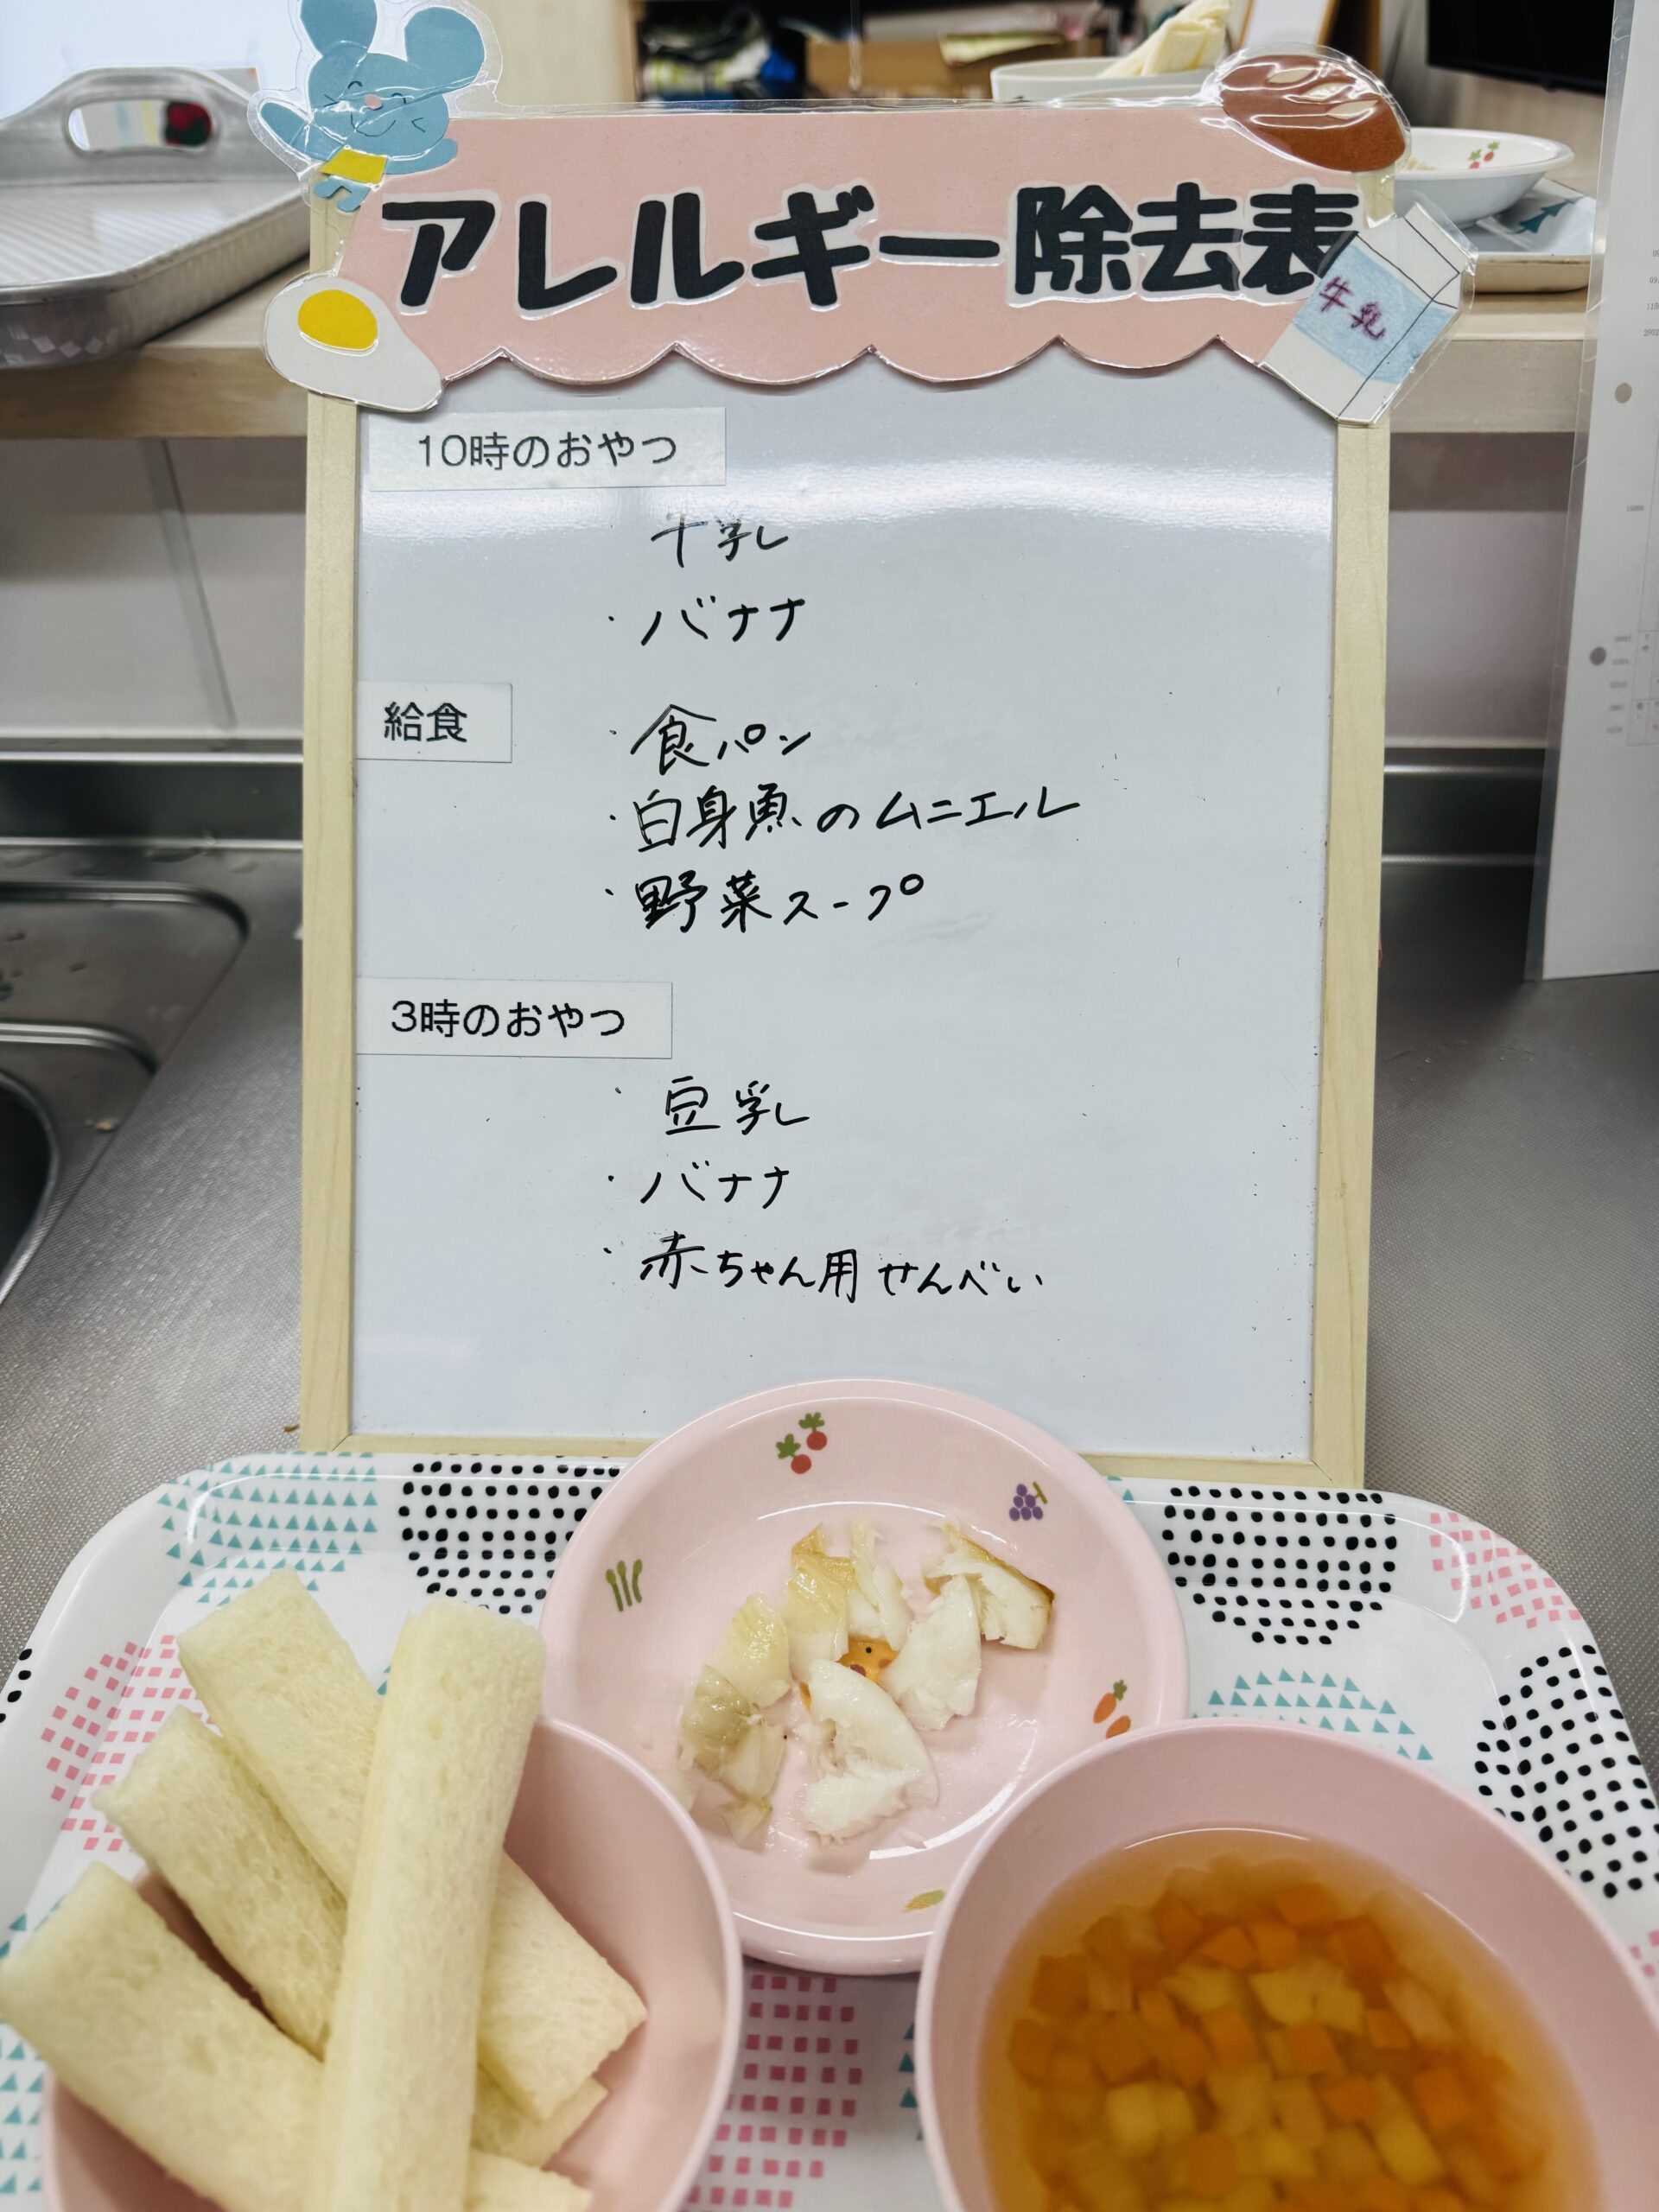 アレルギー除去表
牛乳
10時のおやつ
牛乳
・バナナ
給食
・食パン
・白身魚のムニエル
・野菜スープ
3時のおやつ
・豆乳
・バナナ
・赤ちゃん用せんべい